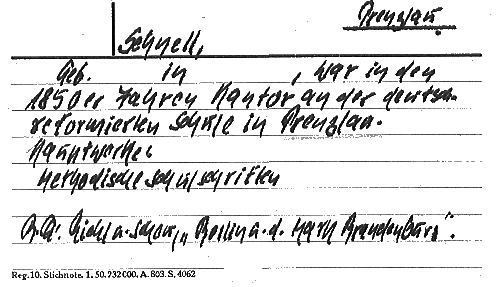 Prenzlau.
Schnell,
Geb. in , war in den
1850er Jahren Kantor an der deutsch-
reformierten Schule in Prenzlau.
Hauptwerke:
Methodische Schulschriften
Richl u. Scheu, „Berlin u. d. Mark Brandenburg".
Reg. 10. Stichnote. 1. 50. 732000. A. 803. S. 4062